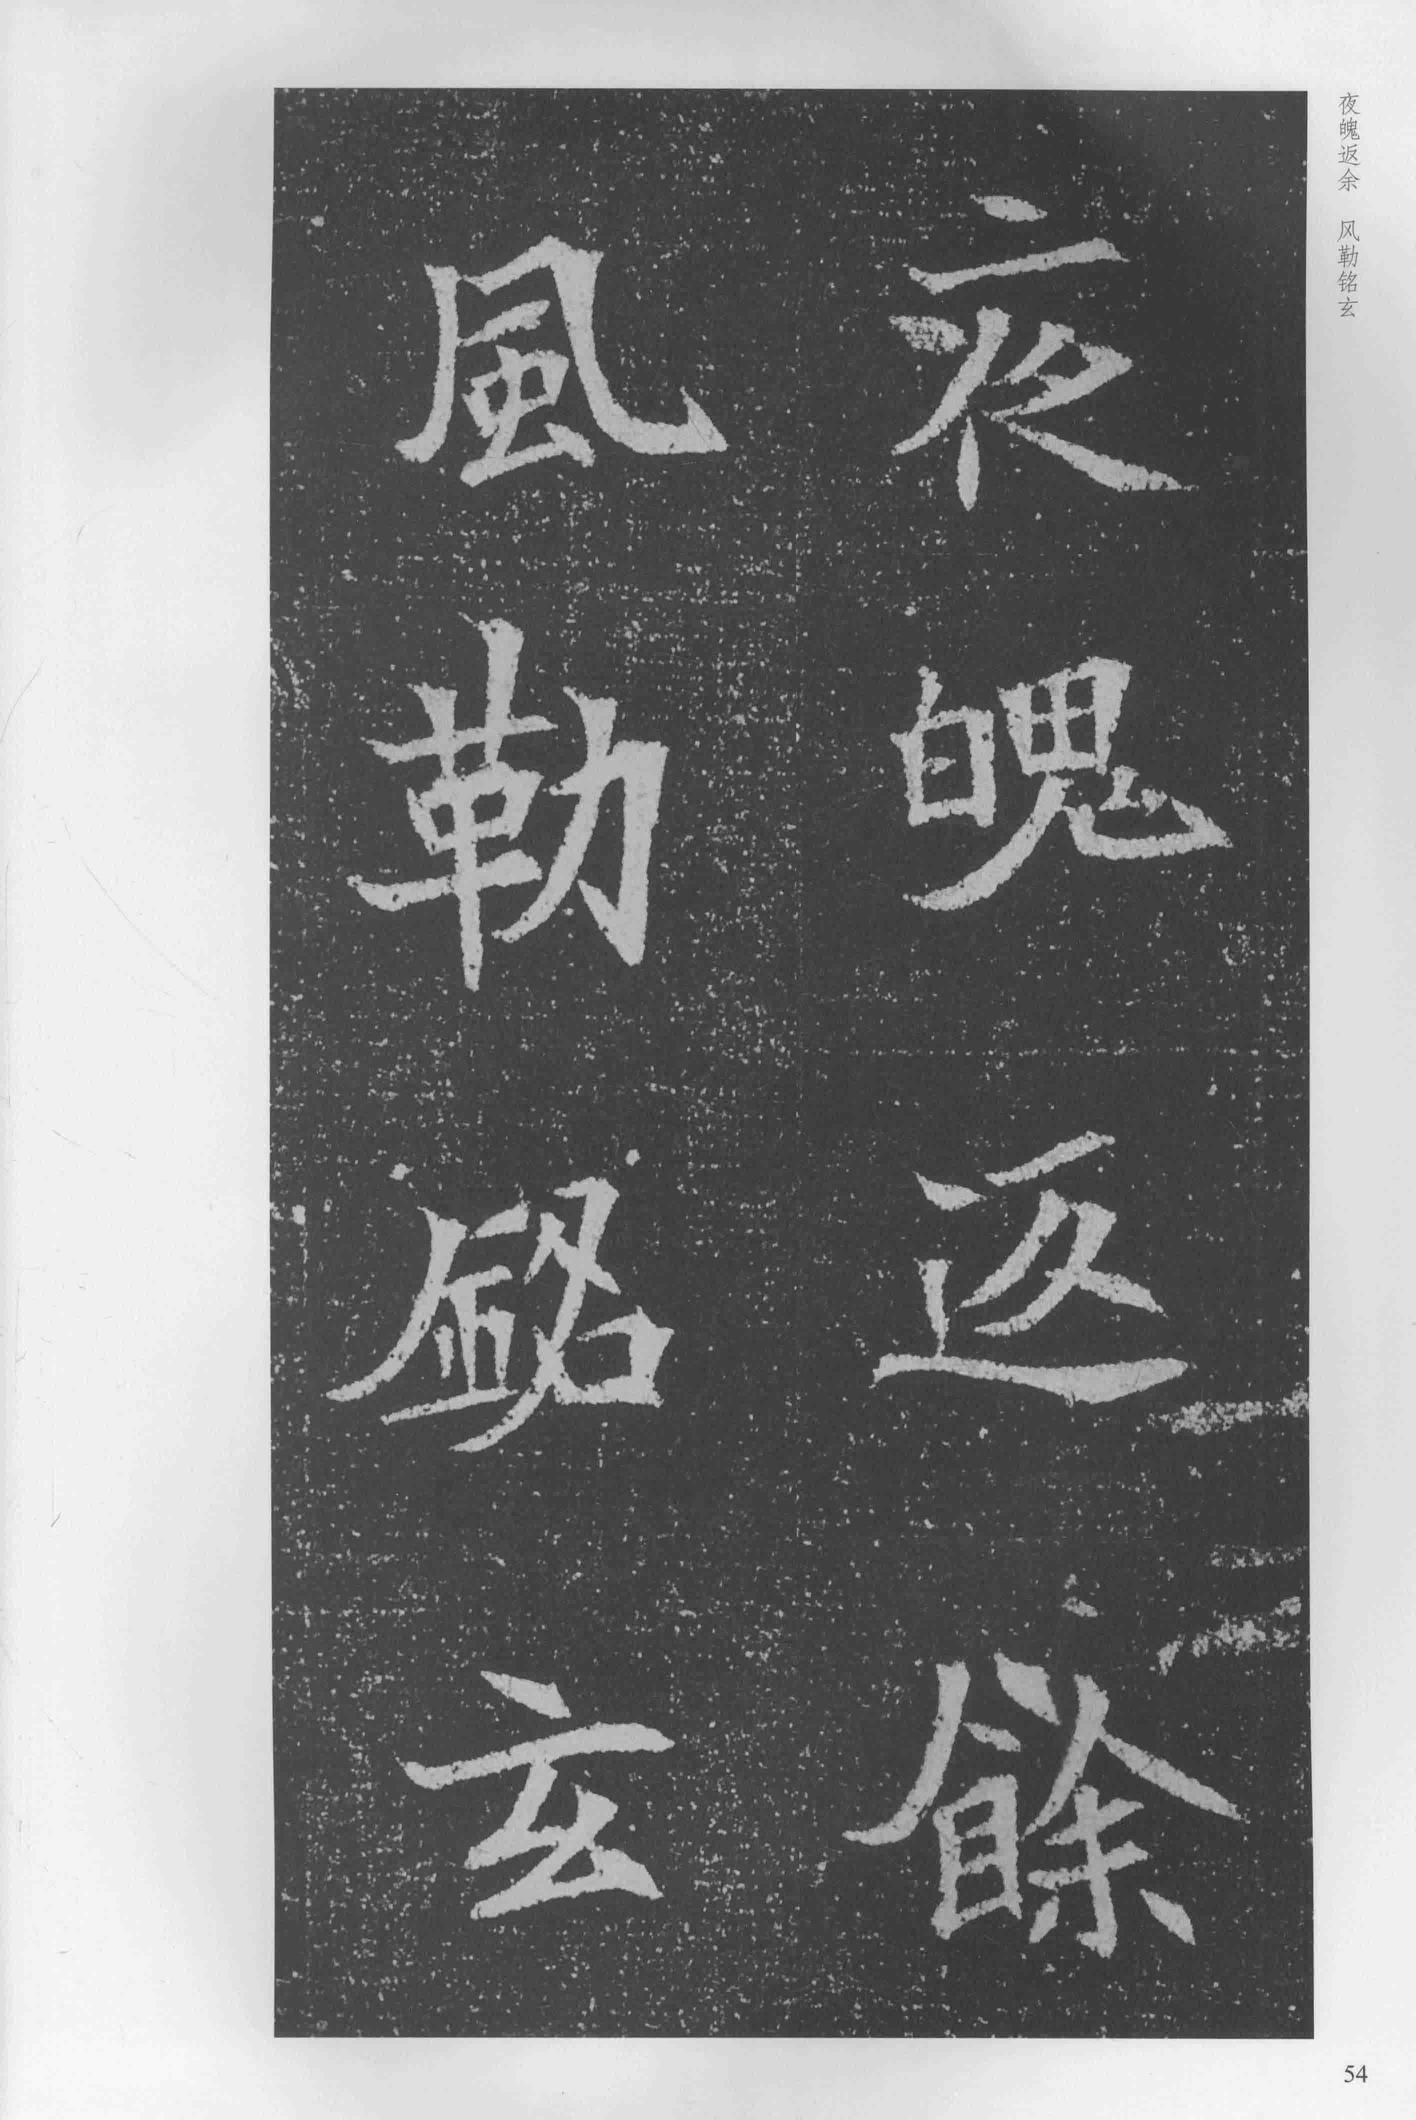 夜魄返余　风勒铭玄
夜魄返餘
風勒銘玄
54